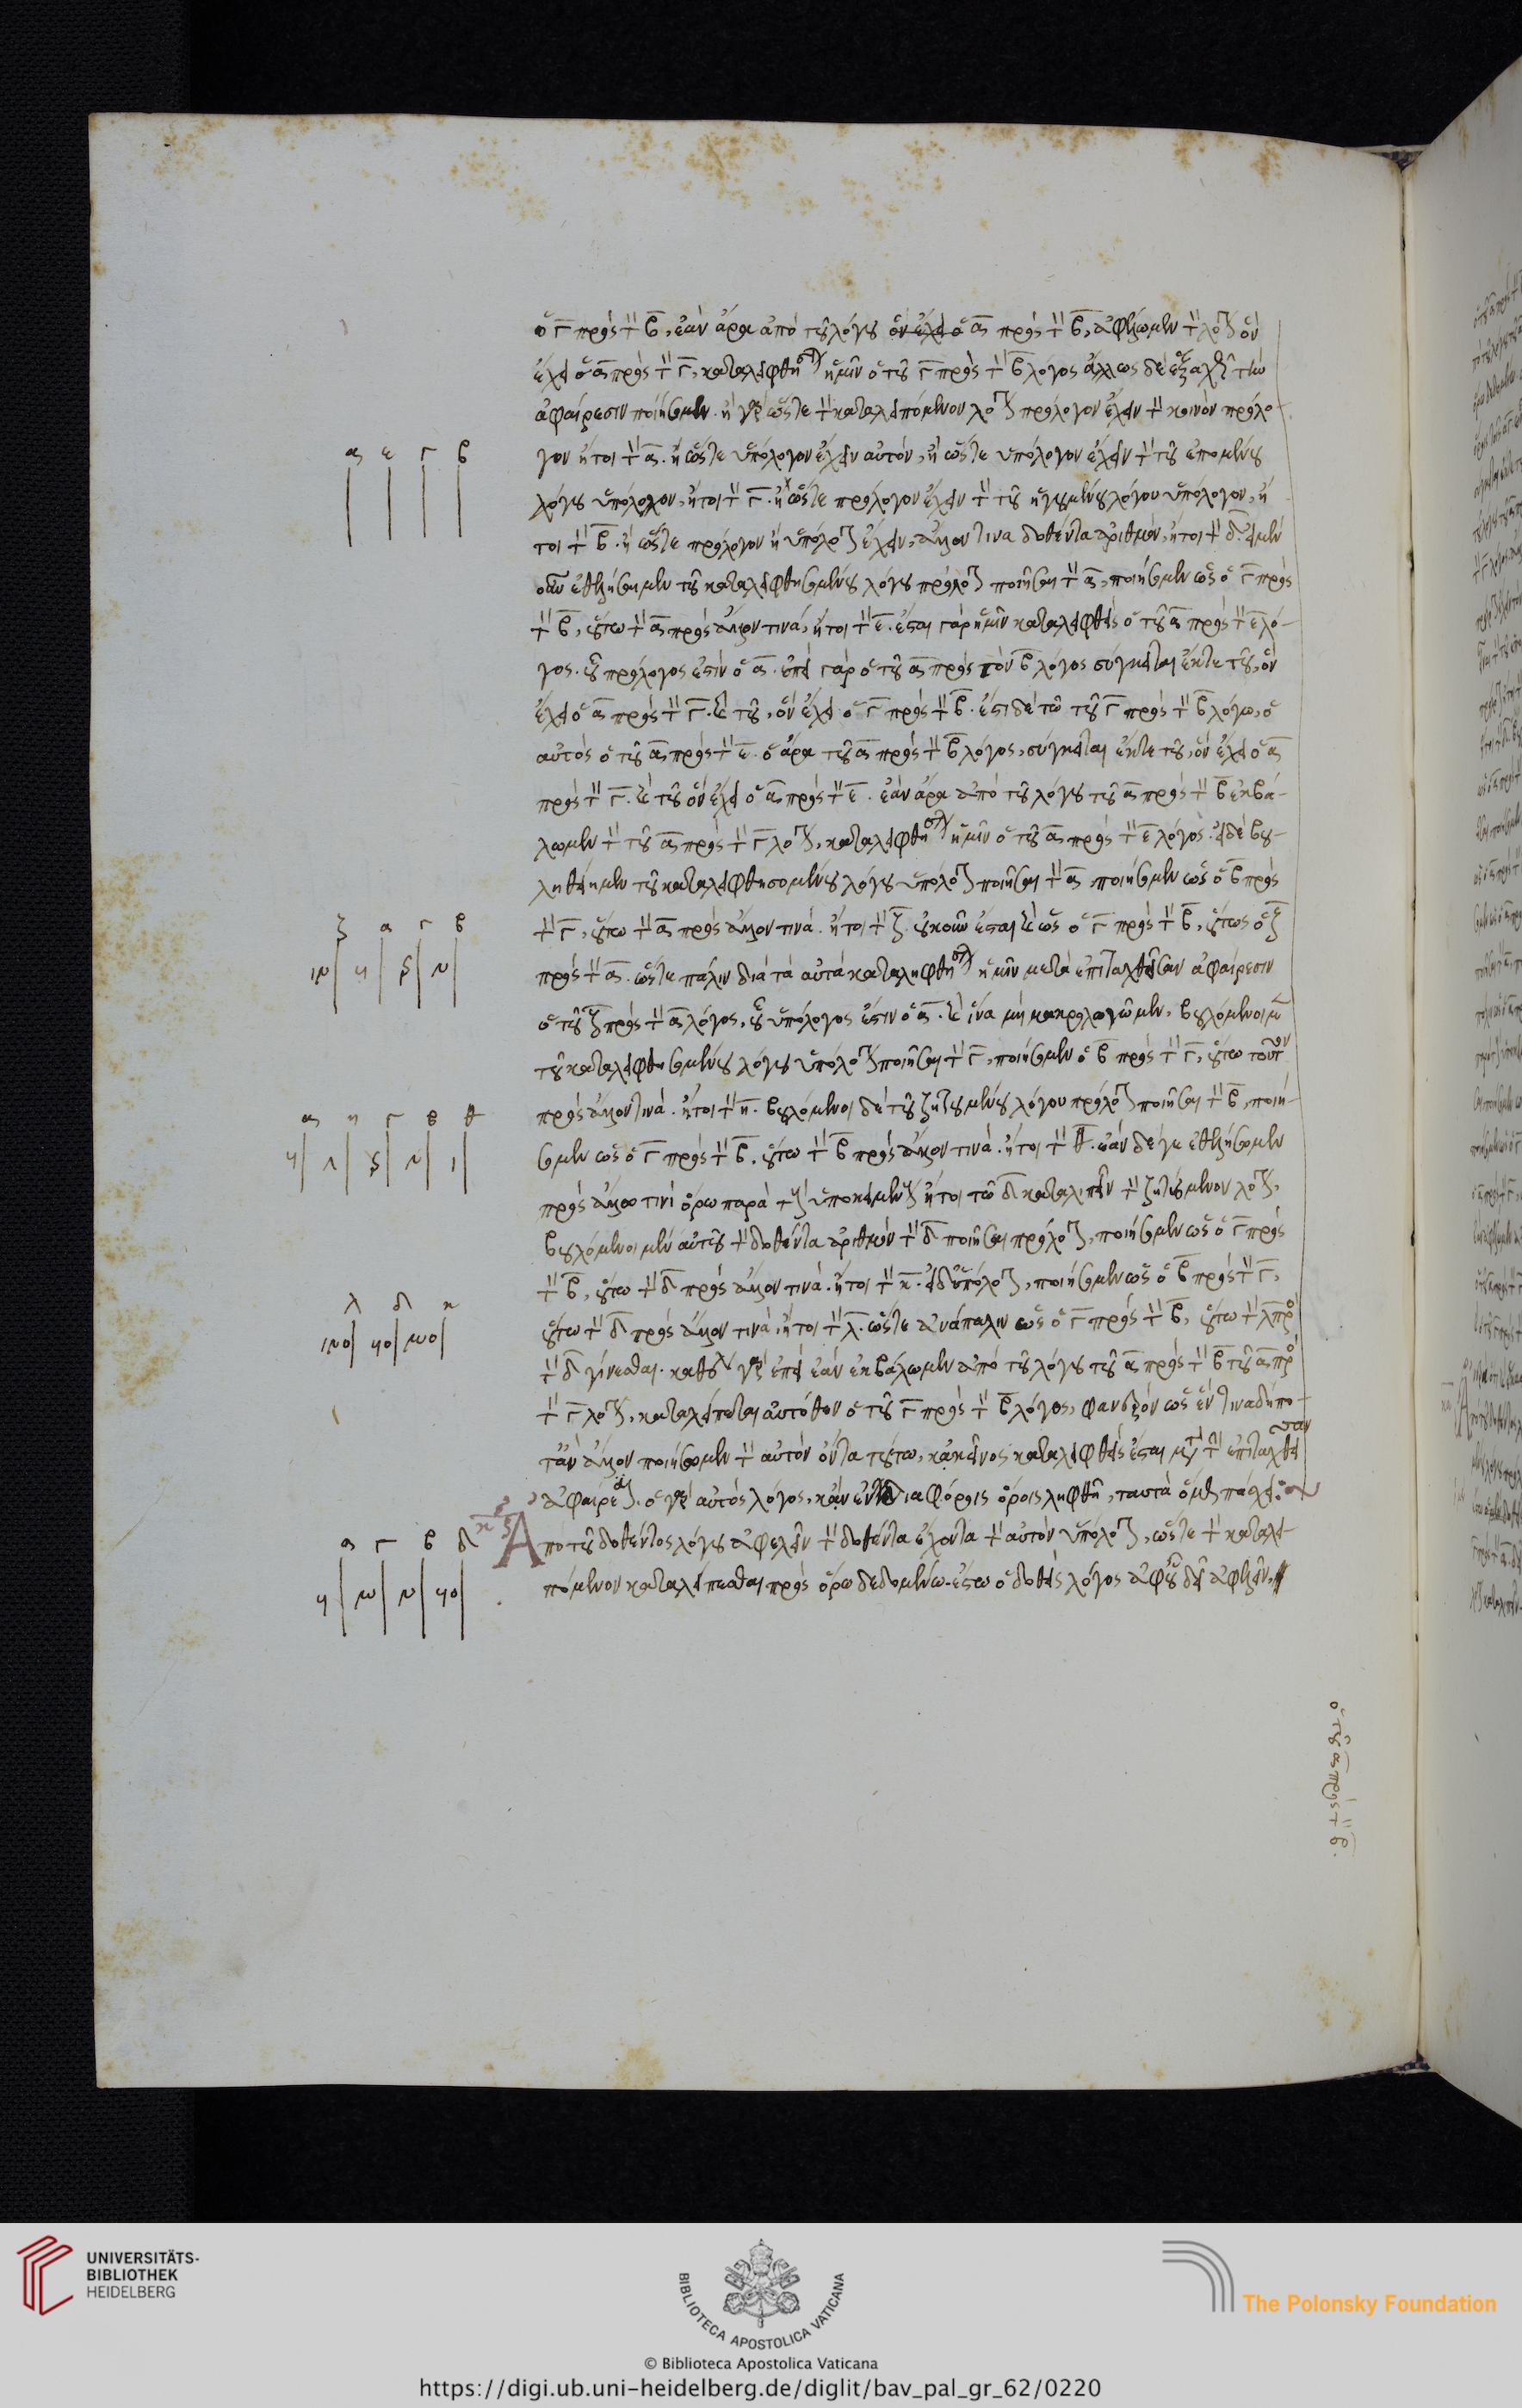 ὁ γ πρὸς τὸν β, ἐὰν ἄρα ἀπὸ τοῦ λόγου ὃν ἔχει ὁ α πρὸς τὸν β, ἀφέλωμεν τὸν λόγον ὃν
ἔχει ὁ α πρὸς τὸν γ, καταλειφθήσεται ἡμῖν ὁ τοῦ γ πρὸς τὸν β λόγος ἄλλως δὲ τὴν
ἀφαίρεσιν ποιήσομεν. ἢ γὰρ ὥστε τὸν καταλειπόμενον λόγον πρόλογον ἔχειν τὸν κοινὸν πρόλο-
γον ἤτοι τὸν α. ἢ ὥστε ὑπόλογον ἔχειν αὐτόν, ἢ ὥστε ὑπόλογον ἔχειν τὸν τοῦ ἑπομένου
λόγου ὑπόλογον, ἤτοι τὸν γ. ἢ ὥστε πρόλογον ἔχειν τὸν τοῦ ἡγουμένου λόγου ὑπόλογον, ἤ
τοι τὸν β. ἢ ὥστε πρόλογον ἢ ὑπόλογον ἔχειν, ἄλλον τινα δοθέντα ἀριθμόν, ἤτοι τὸν δ. εἰ μὲν
οὖν ἐθελήσαιμεν τοῦ καταλειφθησομένου λόγου πρόλογον ποιῆσαι τὸν α, ποιήσομεν ὡς ὁ γ πρὸς
τὸν β, οὕτω τὸν α πρὸς ἄλλον τινά, ἤτοι τὸν ε. ἔσται γὰρ ἡμῖν καταλειφθεὶς ὁ τοῦ α πρὸς τὸν ε λό-
γος. οὗ πρόλογος ἐστὶν ὁ α. ἐπεὶ γὰρ ὁ τοῦ α πρὸς τὸν β λόγος σύγκειται ἔκ τε τοῦ, ὃν
ἔχει ὁ α πρὸς τὸν γ. καὶ τοῦ, ὃν ἔχει ὁ γ πρὸς τὸν β. ἔστι δὲ τῷ τοῦ γ πρὸς τὸν β λόγω, ὁ
αὐτὸς ὁ τοῦ α πρὸς τὸν ε. ὁ ἄρα τοῦ α πρὸς τὸν β λόγος, σύγκειται ἔκ τε τοῦ, ὃν ἔχει ὁ α
πρὸς τὸν γ. καὶ τοῦ ὃν ἔχει ὁ α πρὸς τὸν ε. ἐὰν ἄρα ἀπὸ τοῦ λόγου τοῦ α πρὸς τὸν β ἐκβά-
λωμεν τὸν τοῦ α πρὸς τὸν γ λόγον, καταλειφθήσεται ἡμῖν ὁ τοῦ α πρὸς τὸν ε λόγος. εἰ δὲ βου-
ληθείημεν τοῦ καταλειφθησομένου λόγου ὑπόλογον ποιῆσαι τὸν α, ποιήσομεν ὡς ὁ β πρὸς
τὸν γ, οὕτω τὸν α πρὸς ἄλλον τινά. ἤτοι τὸν ζ. οὐκοῦν ἔσται καὶ ὡς ὁ γ πρὸς τὸν β, οὕτως ὁ ζ
πρὸς τὸν α. ὥστε πάλιν διὰ τὰ αὐτὰ καταληφθήσεται ἡμῖν μετὰ ἐπιταχθεῖσαν ἀφαίρεσιν
ὁ τοῦ ζ πρὸς τὸν α λόγος, οὗ ὑπόλογος ἐστιν ὁ α. καὶ ἵνα μὴ μακρολογῶμεν, βουλόμενοι μὲν
τοῦ καταλειφθησομένου λόγου ὑπόλογον ποιῆσαι τὸν γ, ποιήσομεν ὁ β πρὸς τὸν γ, οὕτω τοῦτον
πρὸς ἄλλον τινά. ἤτοι τὸν η. βουλόμενοι δὲ τοῦ ζητουμένου λόγου πρόλογον ποιῆσαι τὸν β, ποιή-
σομεν ὡς ὁ γ πρὸς τὸν β, οὕτω τὸν β πρὸς ἄλλον τινά. ἤτοι τὸν θ. ἐὰν δέ γε ἐθελήσωμεν
πρὸς ἄλλω τινὶ ὅρω παρὰ τοὺς ὑποκειμένους ἤτοι τῷ δ καταλιπεῖν τὸν ζητούμενον λόγον,
βουλόμενοι μὲν αὐτοῦ τὸν δοθέντα ἀριθμὸν τὸν δ ποιῆσαι πρόλογον, ποιήσομεν ὡς ὁ γ πρὸς
τὸν β, οὕτω τὸν δ πρὸς ἄλλον τινά. ἤτοι τὸν κ. εἰ δ ὑπόλογον, ποιήσομεν ὡς ὁ β πρὸς τὸν γ,
οὕτω τὸν δ πρὸς ἄλλον τινὰ, ἤτοι τὸν λ. ὥστε ἀνάπαλιν ὡς ὁ γ πρὸς τὸν β, οὕτω τὸν λ πρὸς
τὸν δ γίνεσθαι. καθόλου γὰρ ἐπεὶ ἐὰν ἐκβάλωμεν ἀπὸ τοῦ λόγου τοῦ α πρὸς τὸν β τοῦ α πρὸς
τὸν γ λόγον, καταλείπεται αὐτόθεν ὁ τοῦ γ πρὸς τὸν β λόγος, φανερὸν ὡς ἕν τινα δήπο-
τ᾽ ἂν ἄλλον ποιήσωμεν τὸν αὐτὸν ὄντα τούτω, κἀκεῖνος καταλειφθεὶς ἔσται μετὰ τὴν ἐπιταχθεῖσαν
ἀφαίρεσιν. ὁ γὰρ αὐτὸς λόγος, κἂν ἐν διαφόροις ὅροις ληφθῇ, ταυτὰ πάσχει:
Ἀπὸ τοῦ δοθέντος λόγου ἀφελεῖν τὸν δοθέντα ἔχοντα τὸν αὐτὸν ὑπόλογον, ὥστε τὸν καταλει-
πόμενον καταλείπεσθαι πρὸς ὅρω δεδομένω. ἔστω ὁ δοθεὶς λόγος ἀφ᾽ οὗ δεῖ ἀφελεῖν,
α ε γ β
ζ α γ β
α η γ β θ
λ δ κ
α γ β δ
ὁ τοῦ α πρὸς τὸν β.
UNIVERSITÄTS-
BIBLIOTHEK
HEIDELBERG
BIBLIOTECA APOSTOLICA VATICANA
The Polonsky Foundation
© Biblioteca Apostolica Vaticana
https://digi.ub.uni-heidelberg.de/diglit/bav_pal_gr_62/0220